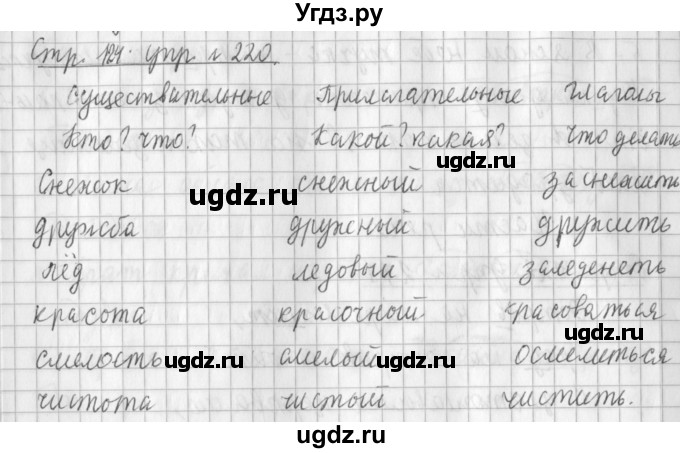 Угдз.ру
Стр. 124. упр № 220.
Существительные Прилагательные Глаголы
Кто? что? Какой? какая? что делать
ugdz.ru
Снежок снежный заснежить
ugdz.ru
дружба дружный дружить
ugdz.ru
лёд ледовый заледенеть
красота красочный красоваться
ugdz.ru
смелость смелый осмелиться
ugdz.ru ugdz.ru ugdz.ru
чистота чистый чистить.
ugdz.ru